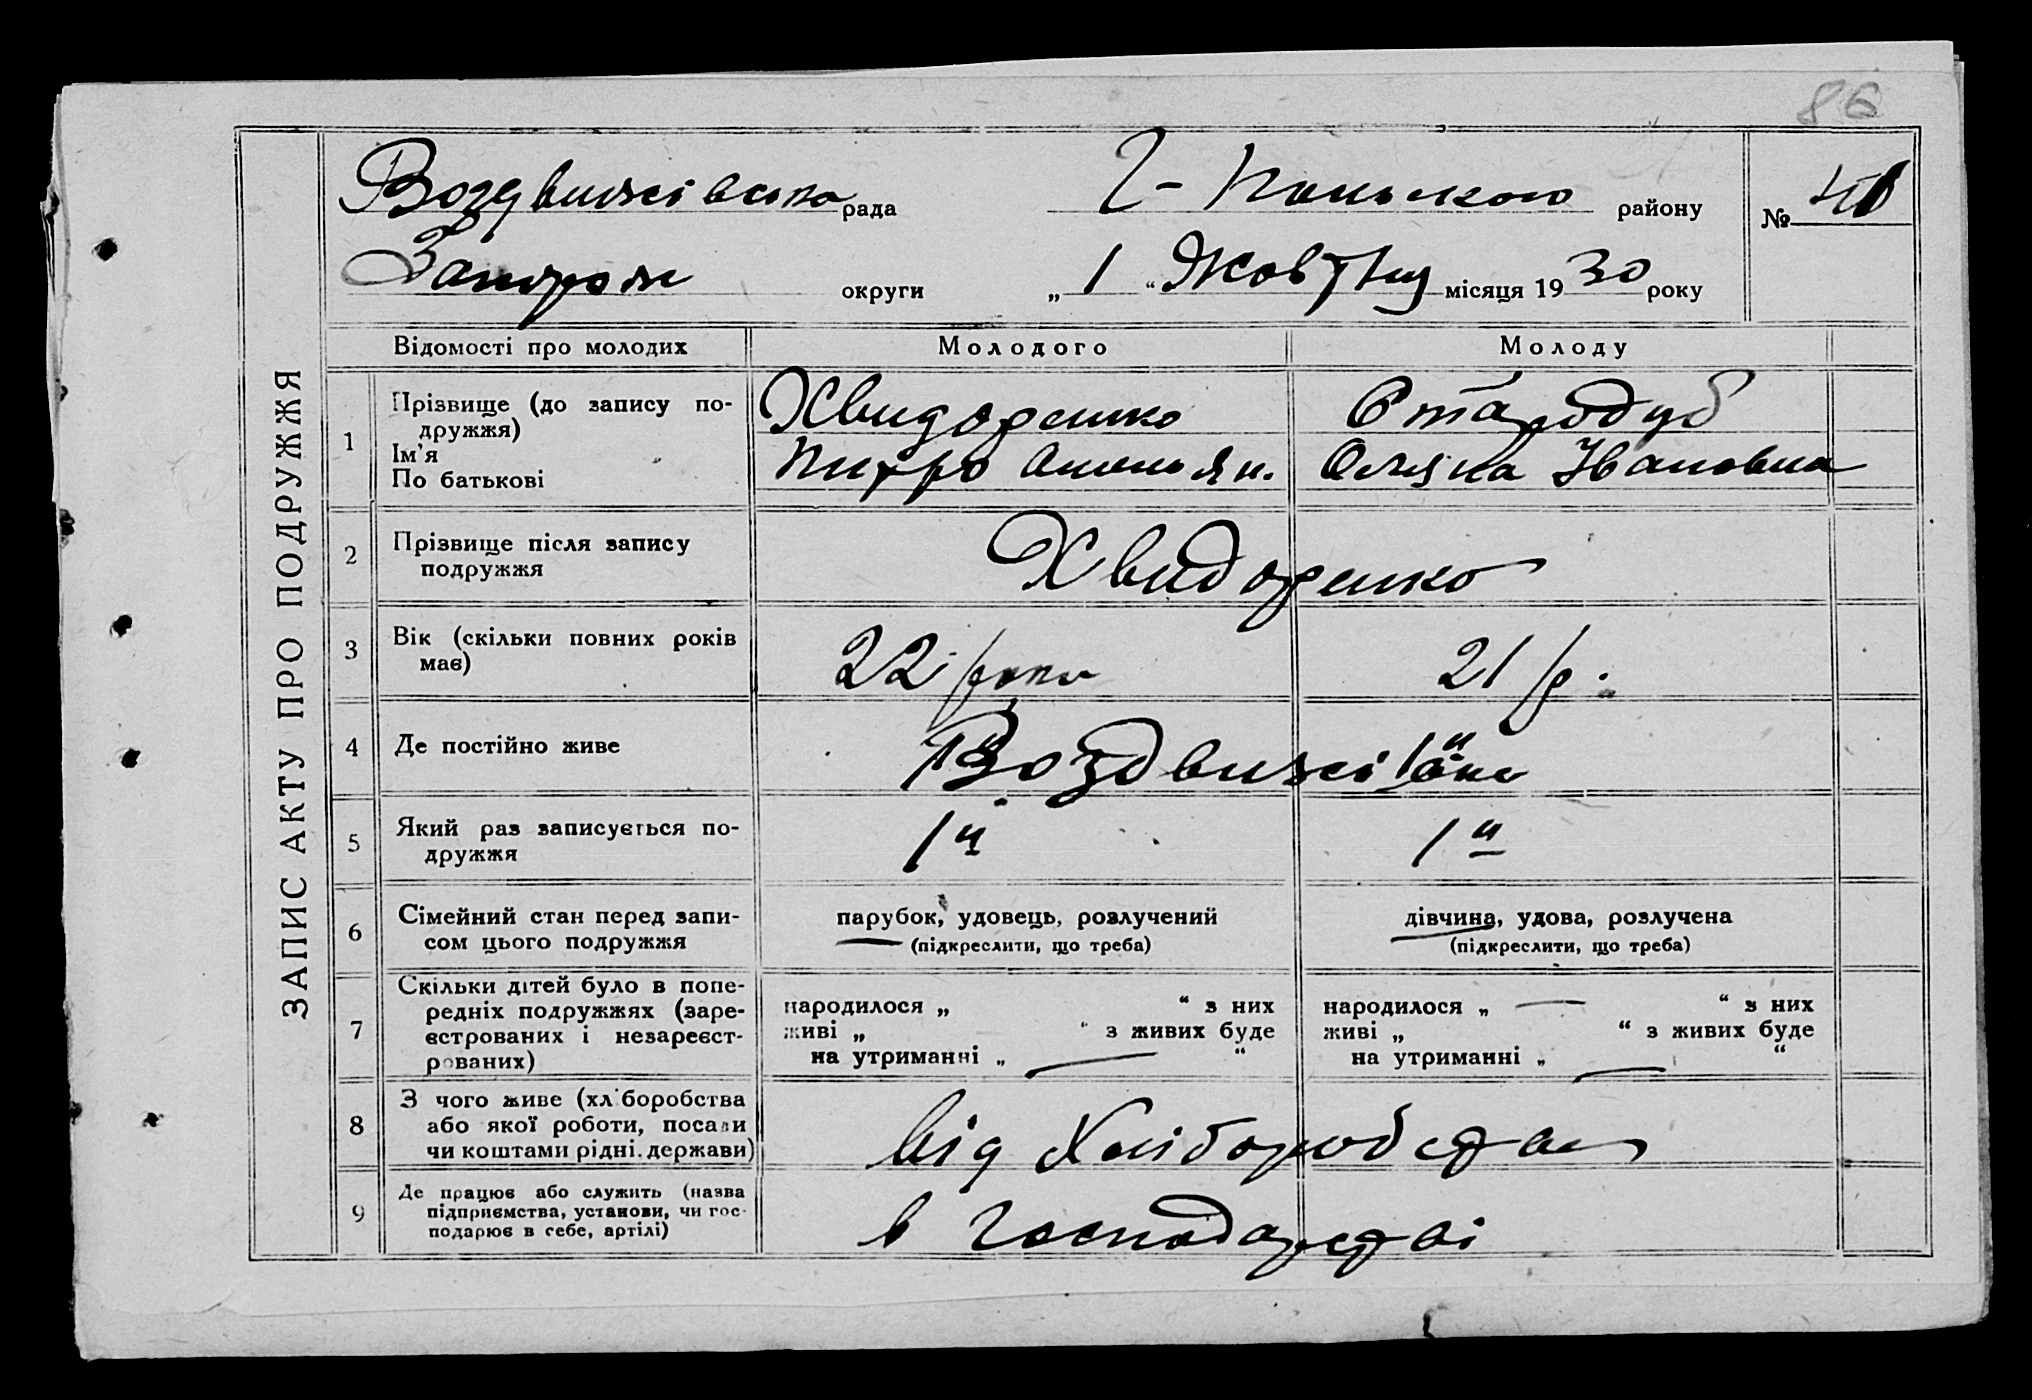 86
Воздвижівська рада Г-Польського району № 
Запорож округи „ 1 “ Жовтня місяця 1930 року
ЗАПИС АКТУ ПРО ПОДРУЖЖЯ
Відомості про молодих Молодого Молоду
1 Прізвище (до запису по-
дружжя)
Хвидоренко Стародуб
Ім'я
По батькові
Питро Омельян. Оляна Івановна
2 Прізвище після запису
подружжя
Хвидоренко
3 Вік (скільки повних років
має)
22 роки 21 р.
4 Де постійно живе Воздвижівка
5 Який раз записується по-
дружжя
1й 1й
6 Сімейний стан перед запи-
сом цього подружжя
парубок, удовець, розлучений дівчина, удова, розлучена
(підкреслити, що треба) (підкреслити, що треба)
7 Скільки дітей було в попе-
редніх подружжях (заре-
єстрованих і незареєст-
рованих)
народилося „ “ з них народилося „ — “ з них
живі „ “ з живих буде живі „ “ з живих буде
на утриманні „ — “ на утриманні „ — “
8 З чого живе (хліборобства
або якої роботи, посади
чи коштами рідні. держави)
від Хліборобства
9 Де працює або служить (назва
підприємства, установи, чи гос-
подарює в себе, артілі)
в господарстві